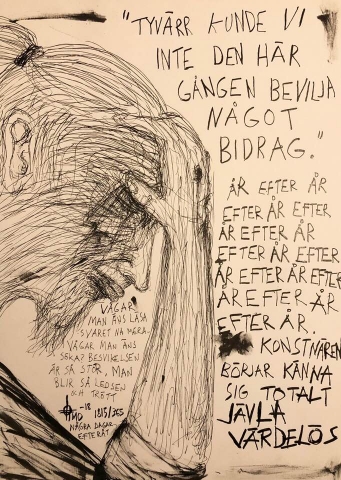 "TYVÄRR KUNDE VI
INTE DEN HÄR
GÅNGEN BEVILJA
NÅGOT
BIDRAG."
ÅR EFTER ÅR
EFTER ÅR EFTER
ÅR EFTER ÅR
EFTER ÅR EFTER
ÅR EFTER ÅR EFTER
ÅR EFTER ÅR
EFTER ÅR.
KONSTNÄREN
BÖRJAR KÄNNA
SIG TOTALT
JÄVLA
VÄRDELÖS
VÅGAR
MAN ENS LÄSA
SVARET NÅ MERA.
VÅGAR MAN ENS
SÖKA? BESVIKELSEN
ÄR SÅ STOR, MAN
BLIR SÅ LEDSEN
OCH TRÖTT
-18
NÅGRA DAGAR
EFTERÅT